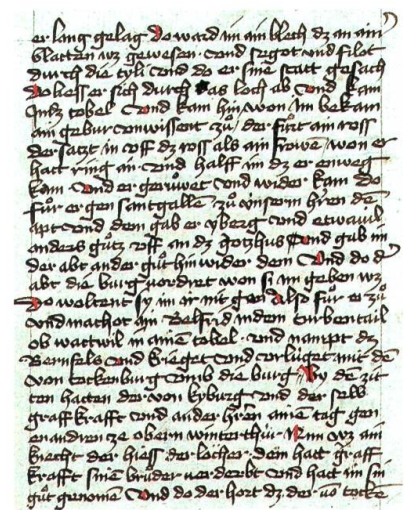 er lang gelag do ward im ain blech dz an ain
blatten wz gewesen vnd segot vnd filot
durch die tyli vnd do er sine statt gesach
do liess er sich durch das loch ab vnd kam
in dz tobel vnd kam hin won im bekam
ain gebur vonwissent zů der fůrt ain ross
der satzt in vff dz ross als ain frowe won er
hatt ring an vnd halff im dz er enweg
kam vnd er gerůwet vnd wider kam do
fůr er gen santgalle zů vnserm hren dē
apt vnd dem gab er yberg vnd etwavil
anders gůtz vff an dz gotzhus vnd gab im
der abt ander gůt hin wider dem vnd do d
abt die burg vordret won si im geben wz
do woltent sy im ir nit gen also fůr er zů
vnd machot ain belfrid in dem turbentail
ob wattwil in ainē tobel vnd nampt dz
Bernfels vnd krieget vnd vrlůget mit dē
von tockenburg vmb die burg By dē zit
ten hatten der von kyburg vnd der selb
graff krafft vnd ander hren ainē tag gen
enandren ze obern winterthur Nun wz ain
knecht der hiess der locher dem hatt graff
krafft sinē brůder verderbt vnd hatt im sin
gůt genomē vnd do der hort dz der vō tocke